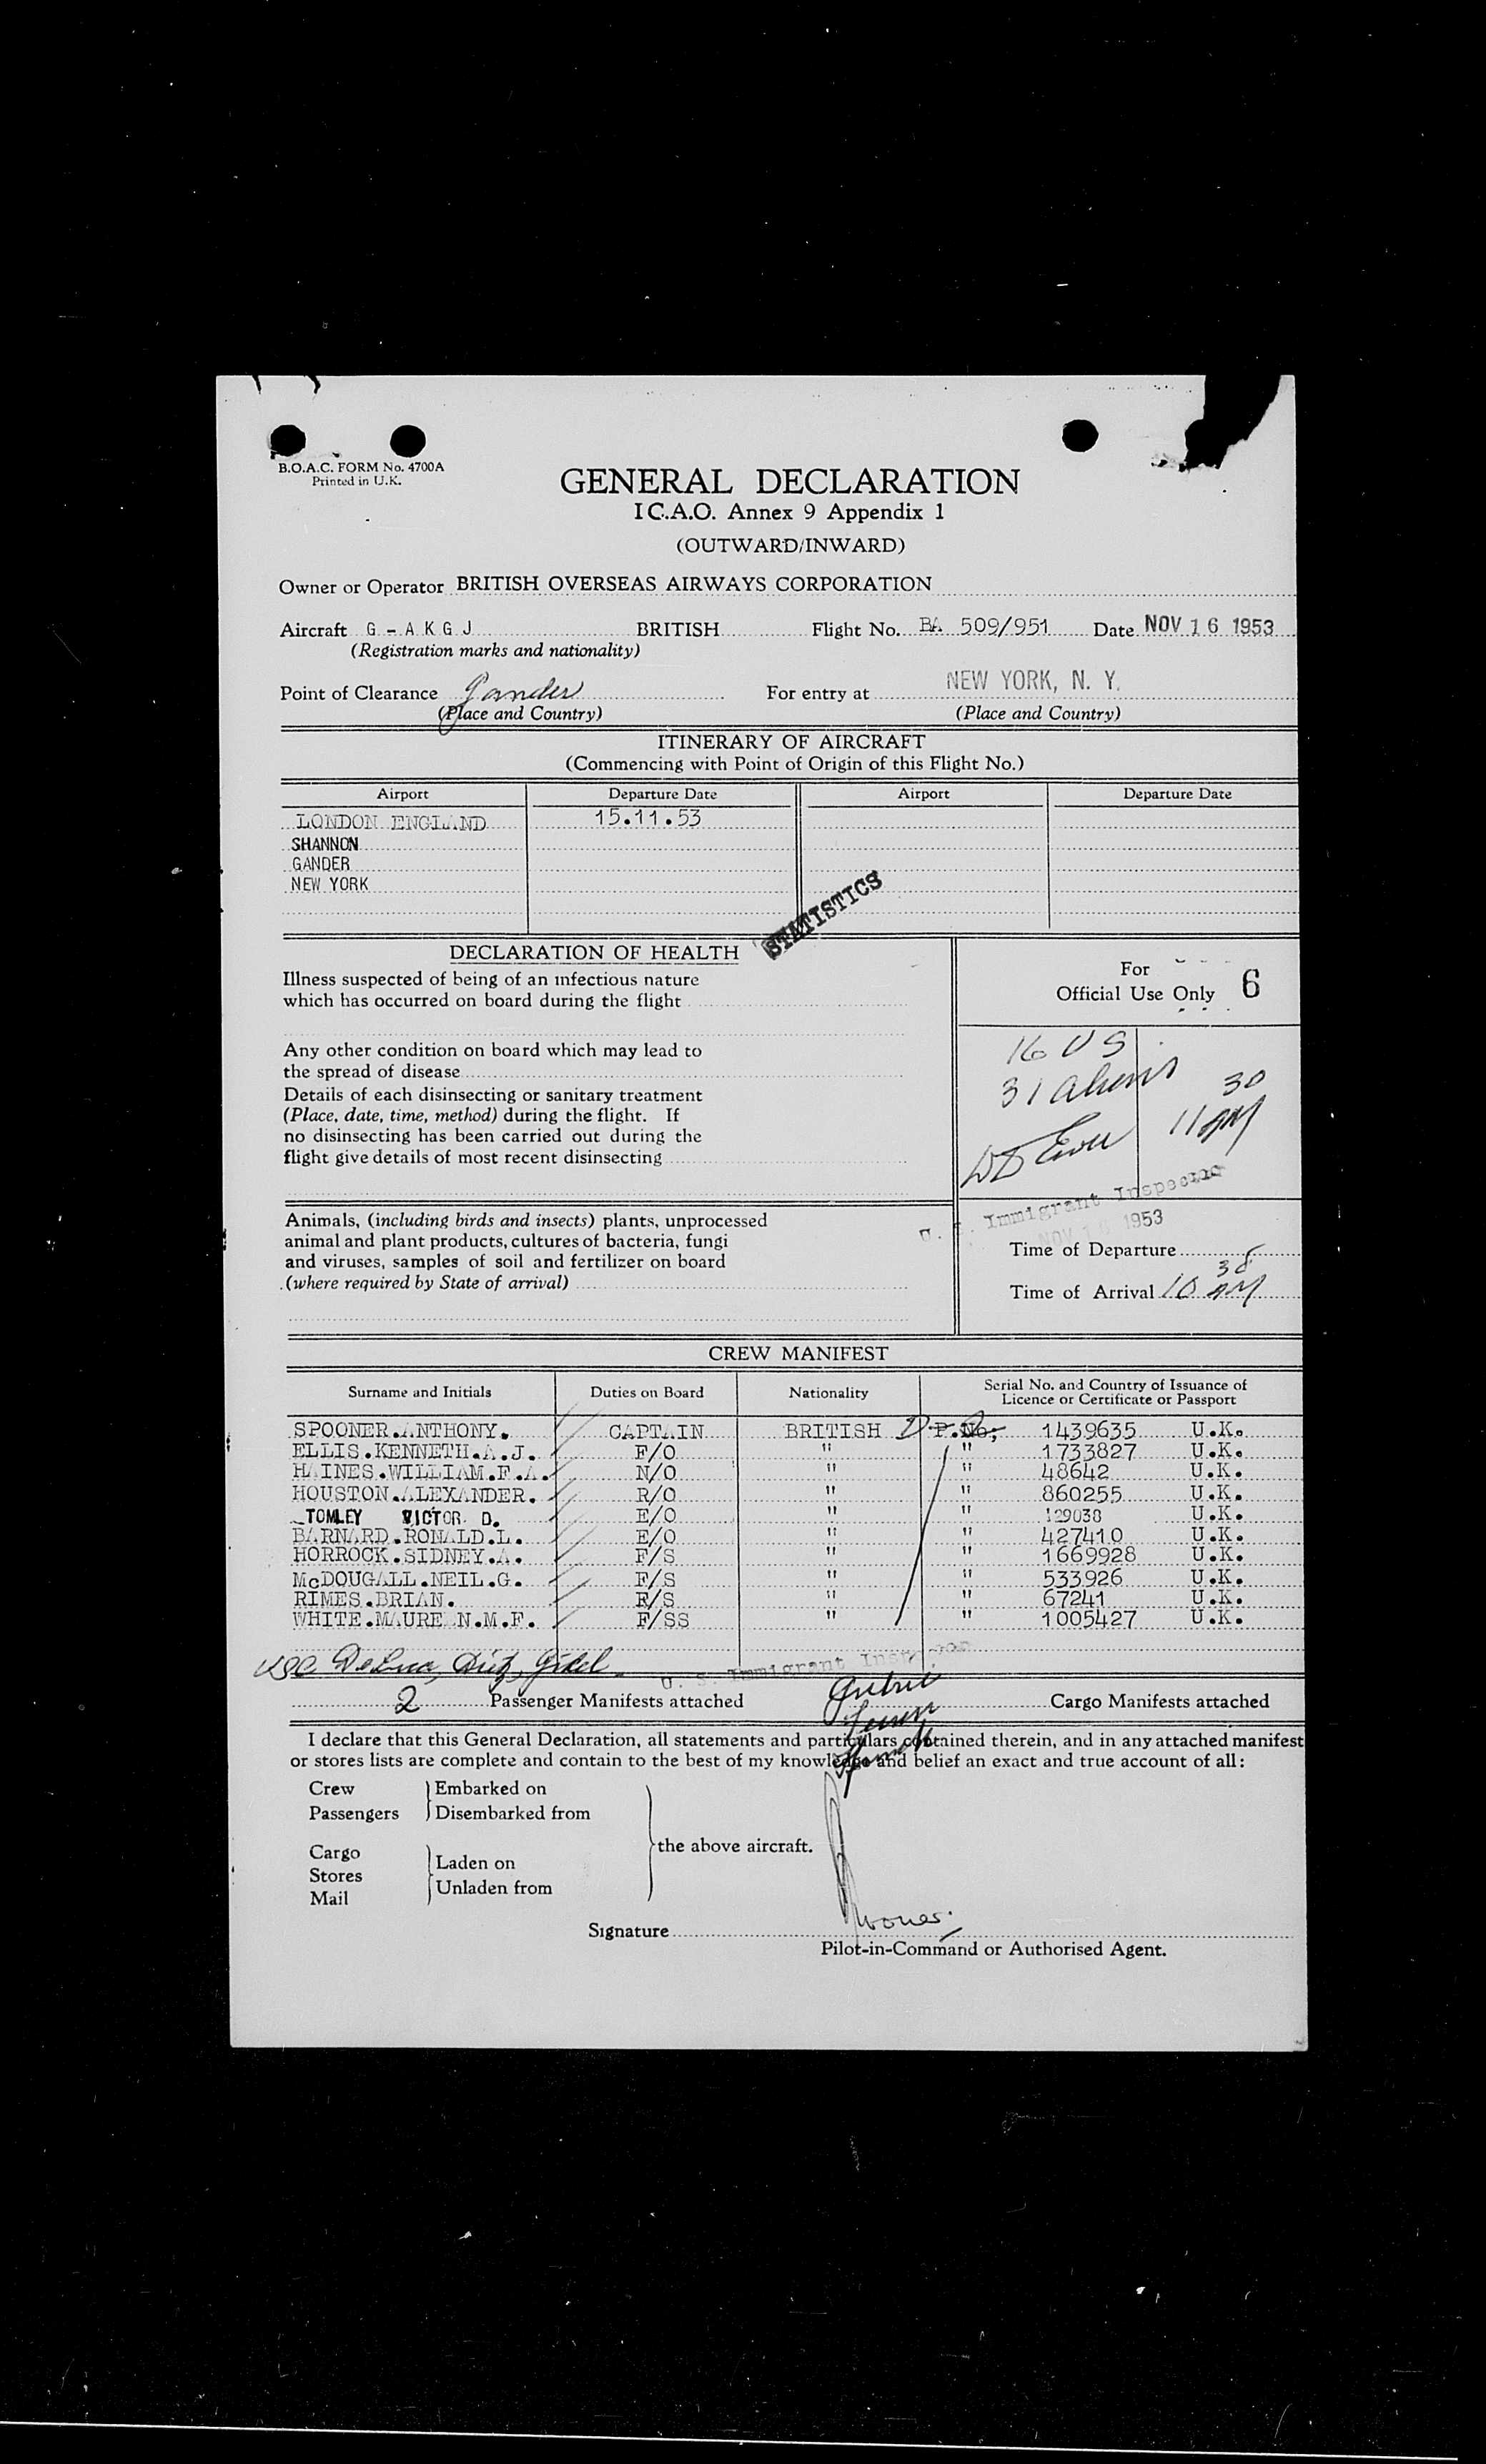 B.O.A.C. FORM No. 4700A
Printed in U.K.
GENERAL DECLARATION
I C.A.O. Annex 9 Appendix 1
(OUTWARD/INWARD)
Owner or Operator BRITISH OVERSEAS AIRWAYS CORPORATION
Aircraft G - A K G J BRITISH Flight No. BA 509/951 Date NOV 16 1953
(Registration marks and nationality)
Point of Clearance Gander For entry at NEW YORK, N. Y.
(Place and Country) (Place and Country)
ITINERARY OF AIRCRAFT
(Commencing with Point of Origin of this Flight No.)
Airport Departure Date Airport Departure Date
LONDON ENGLAND 15.11.53
SHANNON
GANDER
NEW YORK
STATISTICS
DECLARATION OF HEALTH
Illness suspected of being of an infectious nature
which has occurred on board during the flight
Any other condition on board which may lead to
the spread of disease
Details of each disinsecting or sanitary treatment
(Place, date, time, method) during the flight. If
no disinsecting has been carried out during the
flight give details of most recent disinsecting
For
Official Use Only 6
16 US
31 aliens
11 30 AM
U. S. Immigrant Inspector
NOV 16 1953
Animals, (including birds and insects) plants, unprocessed
animal and plant products, cultures of bacteria, fungi
and viruses, samples of soil and fertilizer on board
(where required by State of arrival)
Time of Departure
Time of Arrival 10 38 AM
CREW MANIFEST
Surname and Initials Duties on Board Nationality Serial No. and Country of Issuance of
Licence or Certificate or Passport
SPOONER.ANTHONY. CAPTAIN BRITISH P.No, 1439635 U.K.
ELLIS.KENNETH.A.J. F/O " " 1733827 U.K.
HAINES.WILLIAM.F.A. N/O " " 48642 U.K.
HOUSTON.ALEXANDER. R/O " " 860255 U.K.
TOMLEY VICTOR D. E/O " " 129038 U.K.
BARNARD.RONALD.L. E/O " " 427410 U.K.
HORROCK.SIDNEY.A. F/S " " 1669928 U.K.
McDOUGALL.NEIL.G. F/S " " 533926 U.K.
RIMES.BRIAN. F/S " " 67241 U.K.
WHITE.MAUREEN.M.F. F/SS " " 1005427 U.K.
U. S. Immigrant Inspector
2 Passenger Manifests attached Cargo Manifests attached
I declare that this General Declaration, all statements and particulars contained therein, and in any attached manifest
or stores lists are complete and contain to the best of my knowledge and belief an exact and true account of all:
Crew Embarked on
Passengers Disembarked from
the above aircraft.
Cargo Laden on
Stores
Mail Unladen from
Signature
Pilot-in-Command or Authorised Agent.